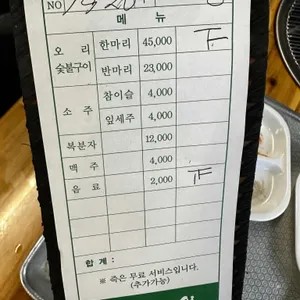 NO
메 뉴
오 리 한마리 45,000 T
숯불구이 반마리 23,000
소 주 참이슬 4,000
잎새주 4,000
복분자 12,000
맥 주 4,000
음 료 2,000 T
합 계 :
※ 죽은 무료 서비스입니다.
(추가가능)